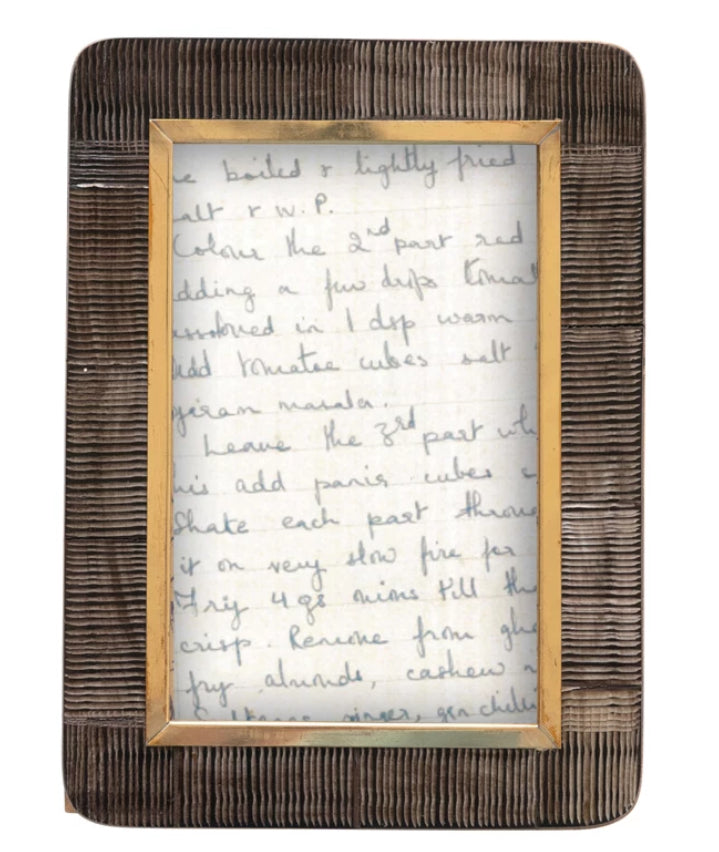 e boiled & lightly fried
alt & W.P.
Colour the 2nd part red
dding a few drops tomat
in 1 dsp warm
Add tomatoe cubes salt
garam masala.
Leave the 3rd part whi
his add panir cubes
Shake each part throu
it on very slow fire for
Fry 4 onions till th
crisp. Remove from ghe
fry almonds, cashew n
ginger, grn chilli